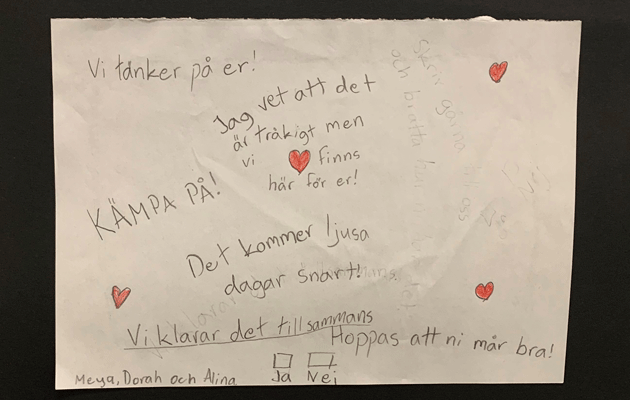 Vi tänker på er!
Jag vet att det
är tråkigt men
vi finns
här för er!
KÄMPA PÅ!
Det kommer ljusa
dagar snart!
Vi klarar det tillsammans
Hoppas att ni mår bra!
Ja Nej
Meya, Dorah och Alina
Skriv gärna till oss
och berätta